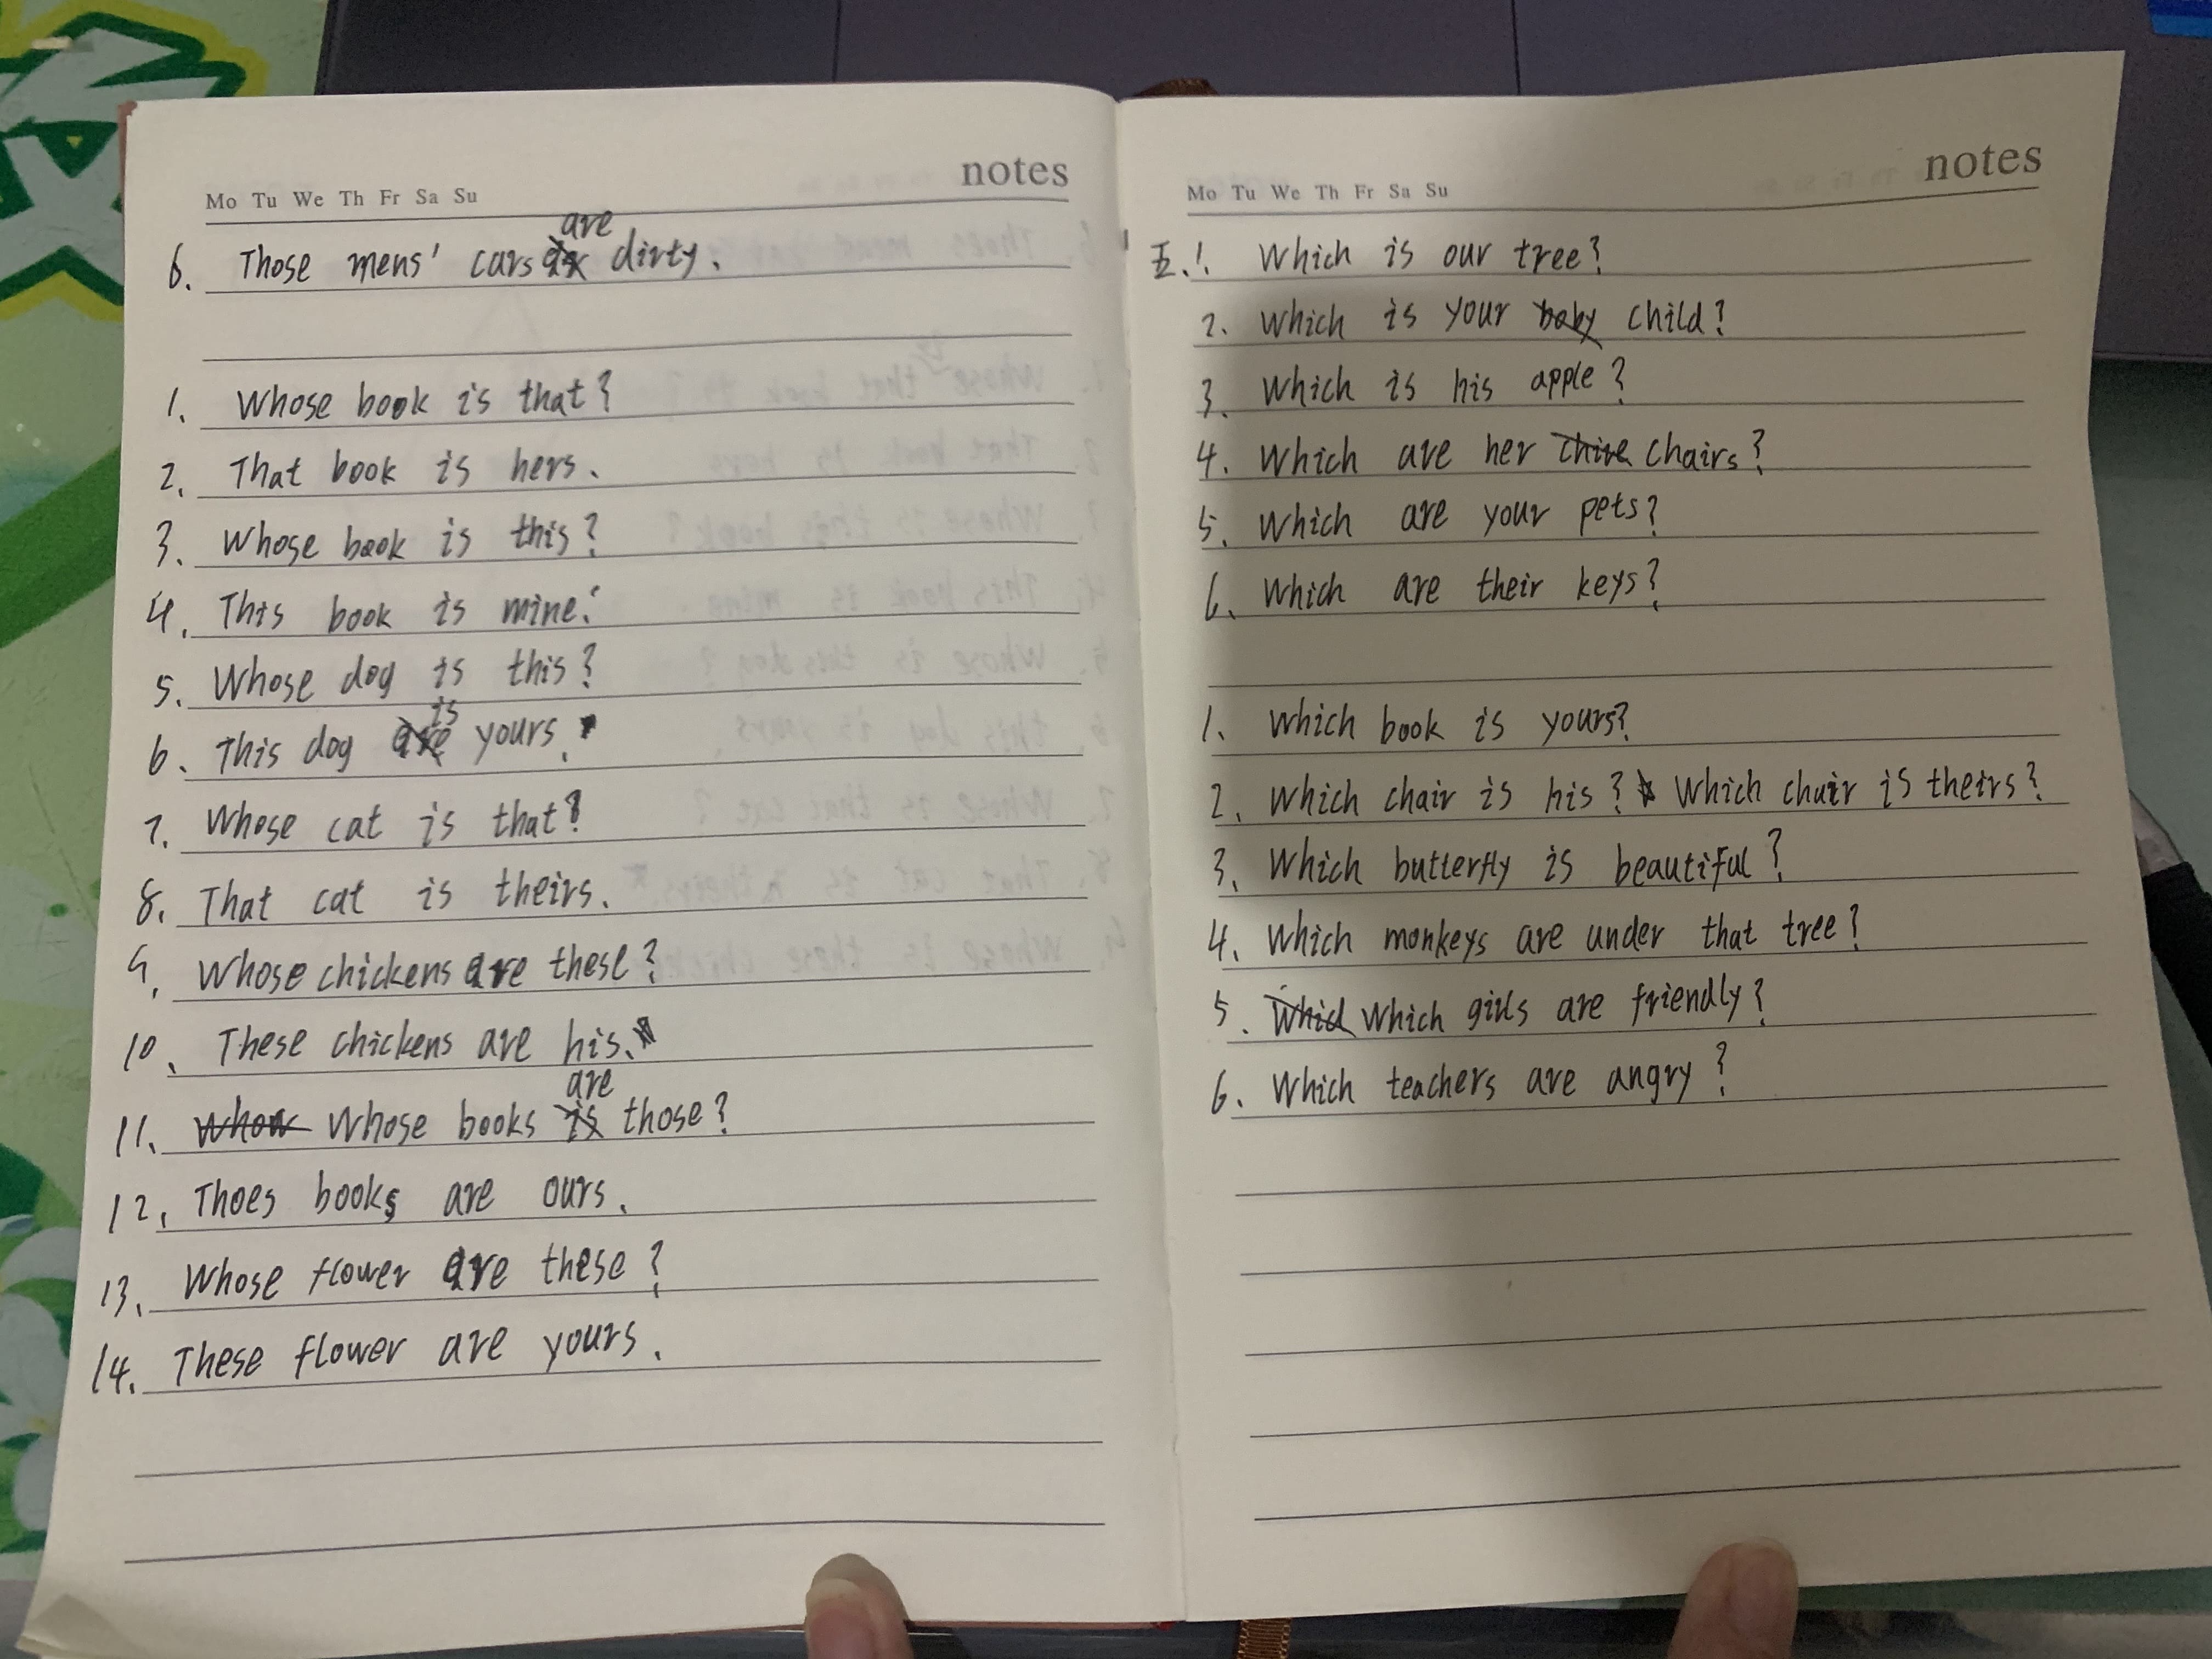 notes
Mo Tu We Th Fr Sa Su
are
6. Those mens' cars dirty.
1. Whose book is that?
2. That book is hers.
3. Whose book is this?
4. This book is mine.
5. Whose dog is this?
is
6. This dog are yours.
7. Whose cat is that?
8. That cat is theirs.
9. Whose chickens are these?
10. These chickens are his.
are
11. Whose books is those?
12. Thoes books are ours.
13. Whose flower are these?
14. These flower are yours.
notes
Mo Tu We Th Fr Sa Su
五. 1. Which is our tree?
2. Which is your baby child?
3. Which is his apple?
4. Which are her chire chairs?
5. Which are your pets?
6. Which are their keys?
1. Which book is yours?
2. Which chair is his? Which chair is theirs?
3. Which butterfly is beautiful?
4. Which monkeys are under that tree?
5. Whicl Which girls are friendly?
6. Which teachers are angry?